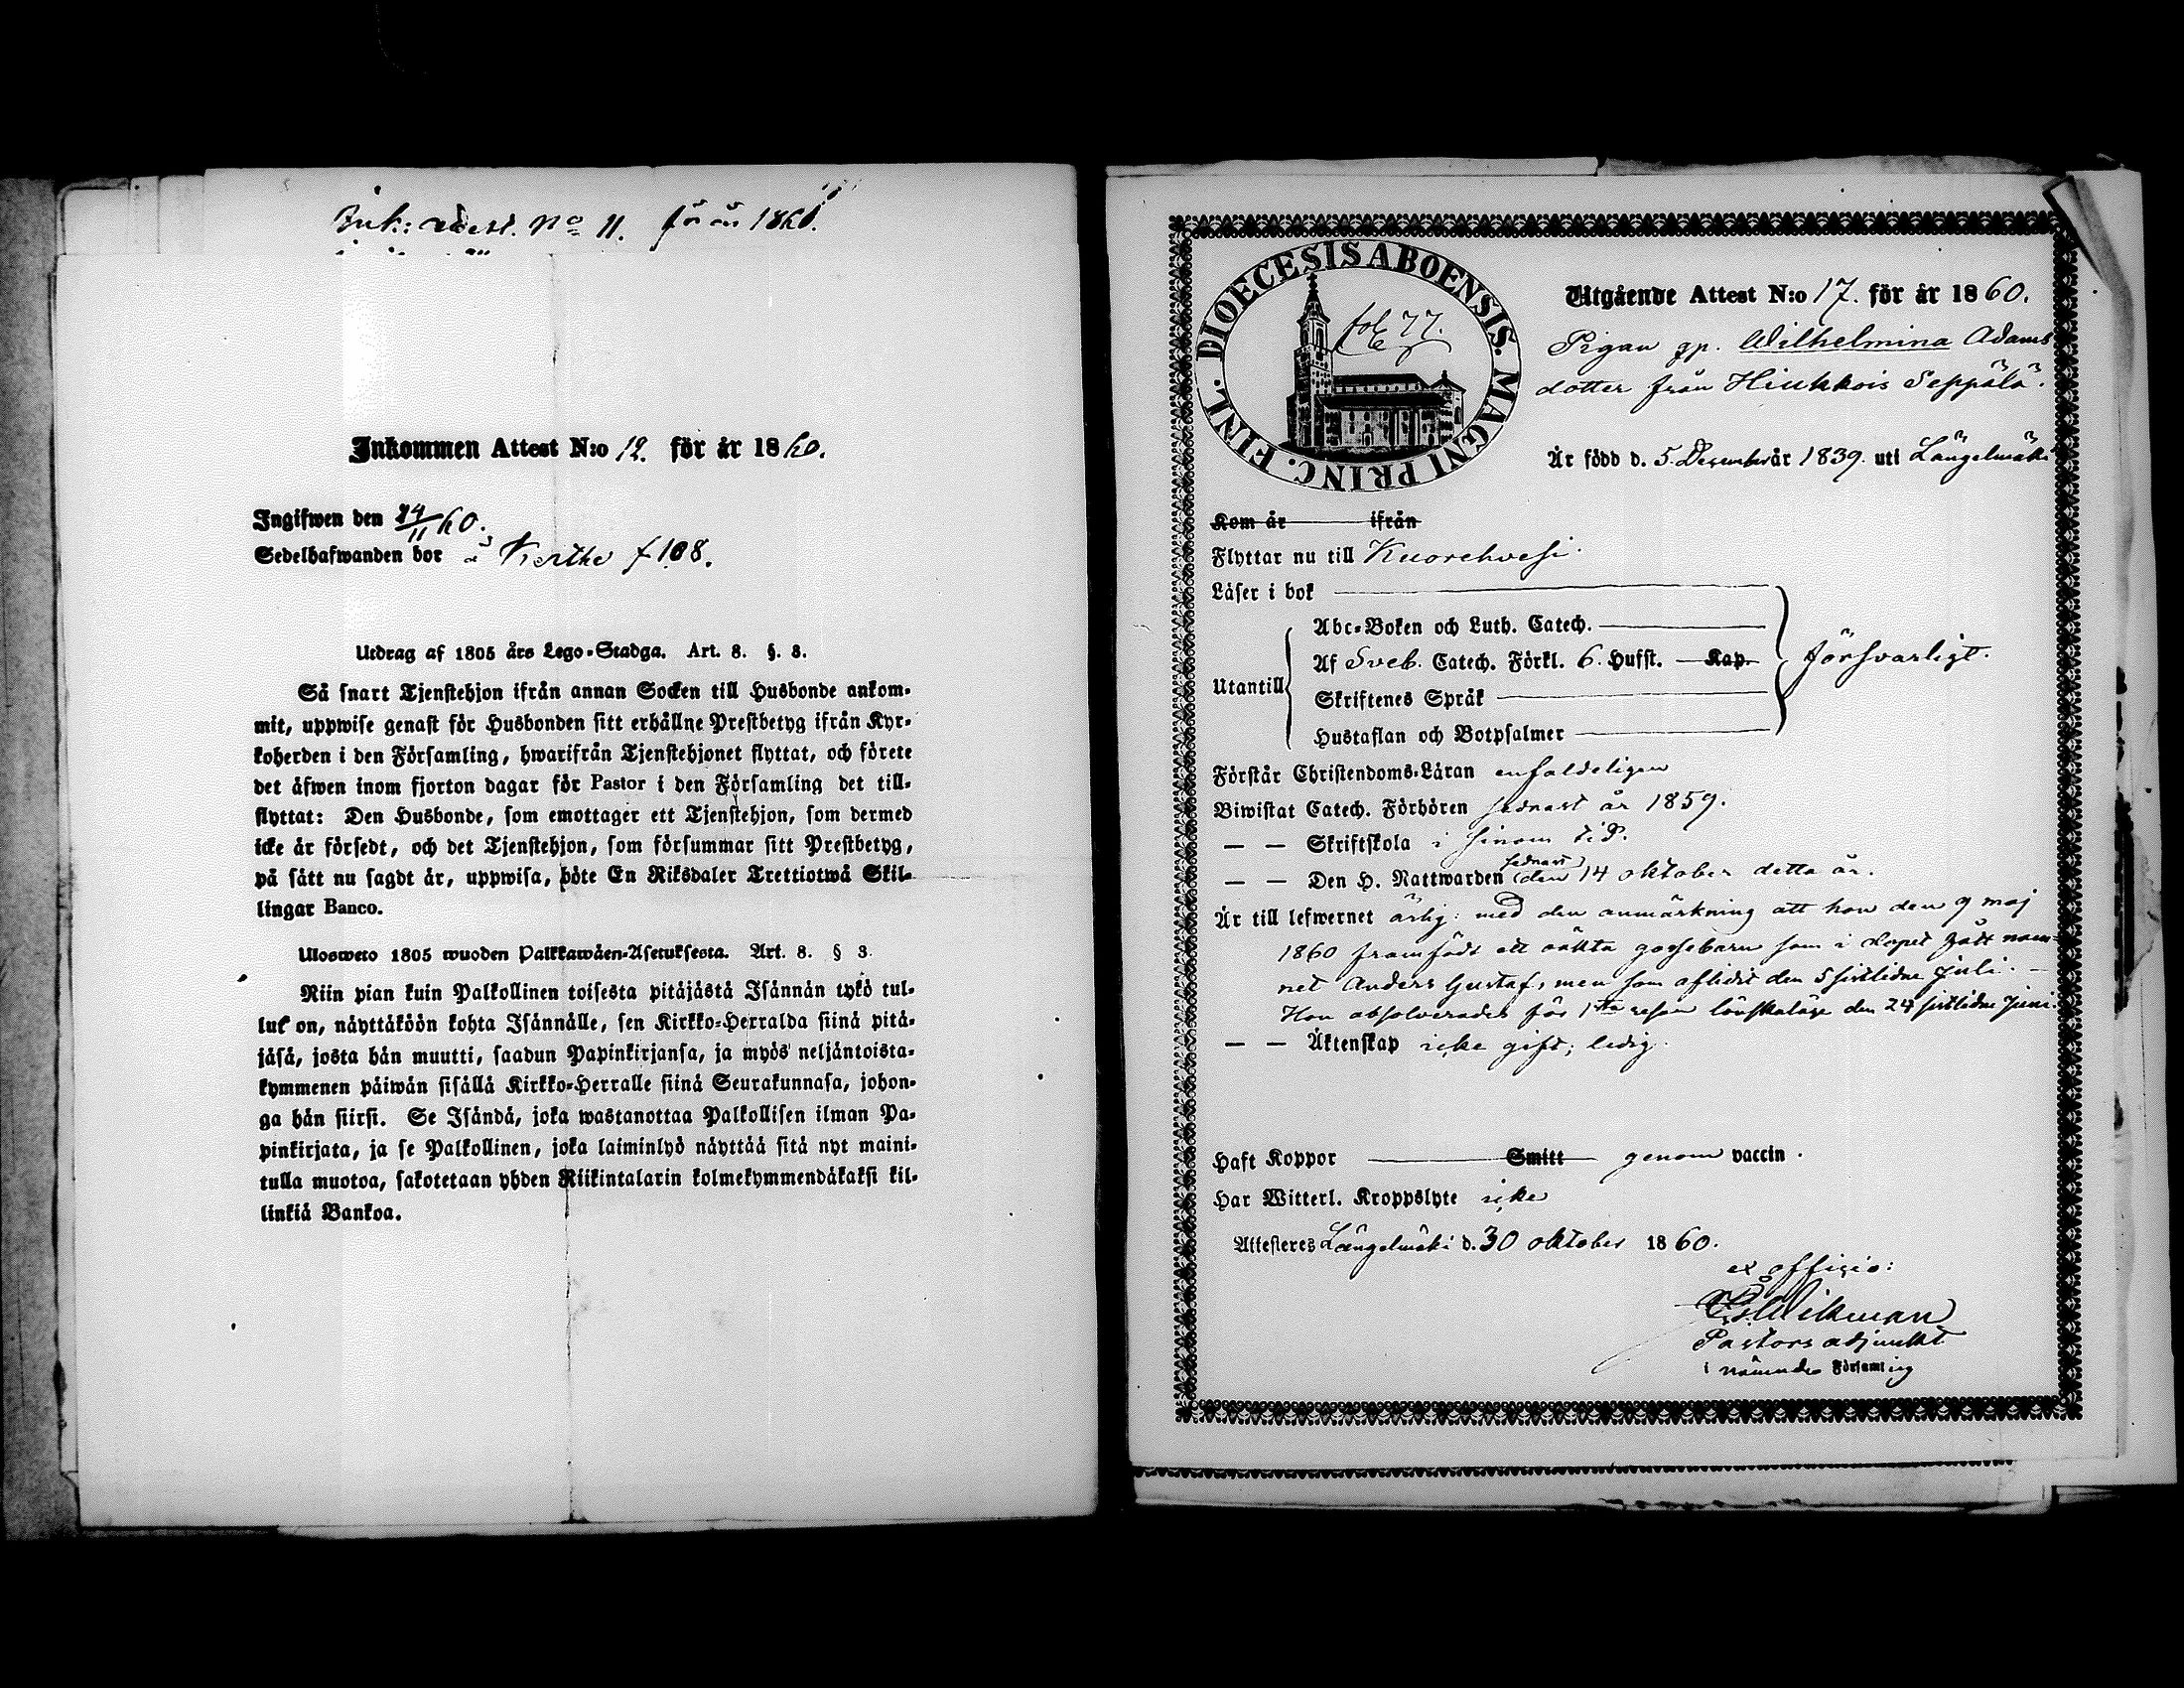 Ink: attest. No 11. för år 1860.
Inkommen Attest N:o 12. för år 1860.
Ingifwen den 24/11 60.
Sedelhafwanden bor å f 108.
Utdrag af 1805 års Lego-Stadga. Art. 8. §. 3.
Så snart Tjenstehjon ifrån annan Socken till Husbonde ankom-
mit, uppwise genast för Husbonden sitt erhållne Prestbetyg ifrån Kyr-
koherden i den Församling, hwarifrån Tjenstehjonet flyttat, och förete
det äfwen inom fjorton dagar för Pastor i den Församling det till-
flyttat: Den Husbonde, som emottager ett Tjenstehjon, som dermed
icke är försedt, och det Tjenstehjon, som försummar sitt Prestbetyg,
på sätt nu sagdt är, uppwisa, böte En Riksdaler Trettiotwå Skil-
lingar Banco.
Ulosweto 1805 wuoden Palkkawäen-Asetuksesta. Art. 8. § 3.
Niin pian kuin Palkollinen toisesta pitäjästä Isännän tykö tul-
lut on, näyttäköön kohta Isännälle, sen Kirkko-Herralda siinä pitä-
jäsä, josta hän muutti, saadun Papinkirjansa, ja myös neljäntoista-
kymmenen päiwän sisällä Kirkko-Herralle siinä Seurakunnasa, johon-
ga hän siirsi. Se Isändä, joka wastanottaa Palkollisen ilman Pa-
pinkirjata, ja se Palkollinen, joka laiminlyö näyttää sitä nyt maini-
tulla muotoa, sakotetaan yhden Riikintalarin kolmekymmendäkaksi kil-
linkiä Bankoa.
DIOECESIS ABOENSIS. MAGNI PRINC. FINL.
fol. 77.
Utgående Attest N:o 17. för år 1860.
Pigan qp. Wilhelmina Adams
dotter från Hiukkois Seppälä.
Är född d. 5. December år 1839. uti Längelmäki
Kom år ifrån
Flyttar nu till Kuorehvesi.
Läser i bok
Abc-Boken och Luth. Catech.
Utantill Af Sveb. Catech. Förkl. 6. Hufst. Kap. försvarligt.
Skriftenes Språk
Hustaflan och Botpsalmer
Förstår Christendoms-Läran enfaldeligen
Biwistat Catech. Förhören sednast år 1859.
— — Skriftskola i sinom tid.
— — Den H. Nattwarden sednast den 14 oktober detta år.
Är till lefwernet ärlig: med den anmärkning att hon den 9 maj
1860 framfödt ett oäkta gossebarn som i dopet fått nam-
net Anders Gustaf, men som aflidit den 5 sistlidne Juli. –
Hon absolverades för 1sta resan lönskaläge den 24 sistlidne Juni.
— — Äktenskap icke gift; ledig.
Haft Koppor Smitt genom vaccin.
Har Witterl. Kroppslyte icke
Attesteres Längelmäki d. 30 oktober 1860.
ex officio:
Wikman
Pastors adjunkt
i nämnde Församling